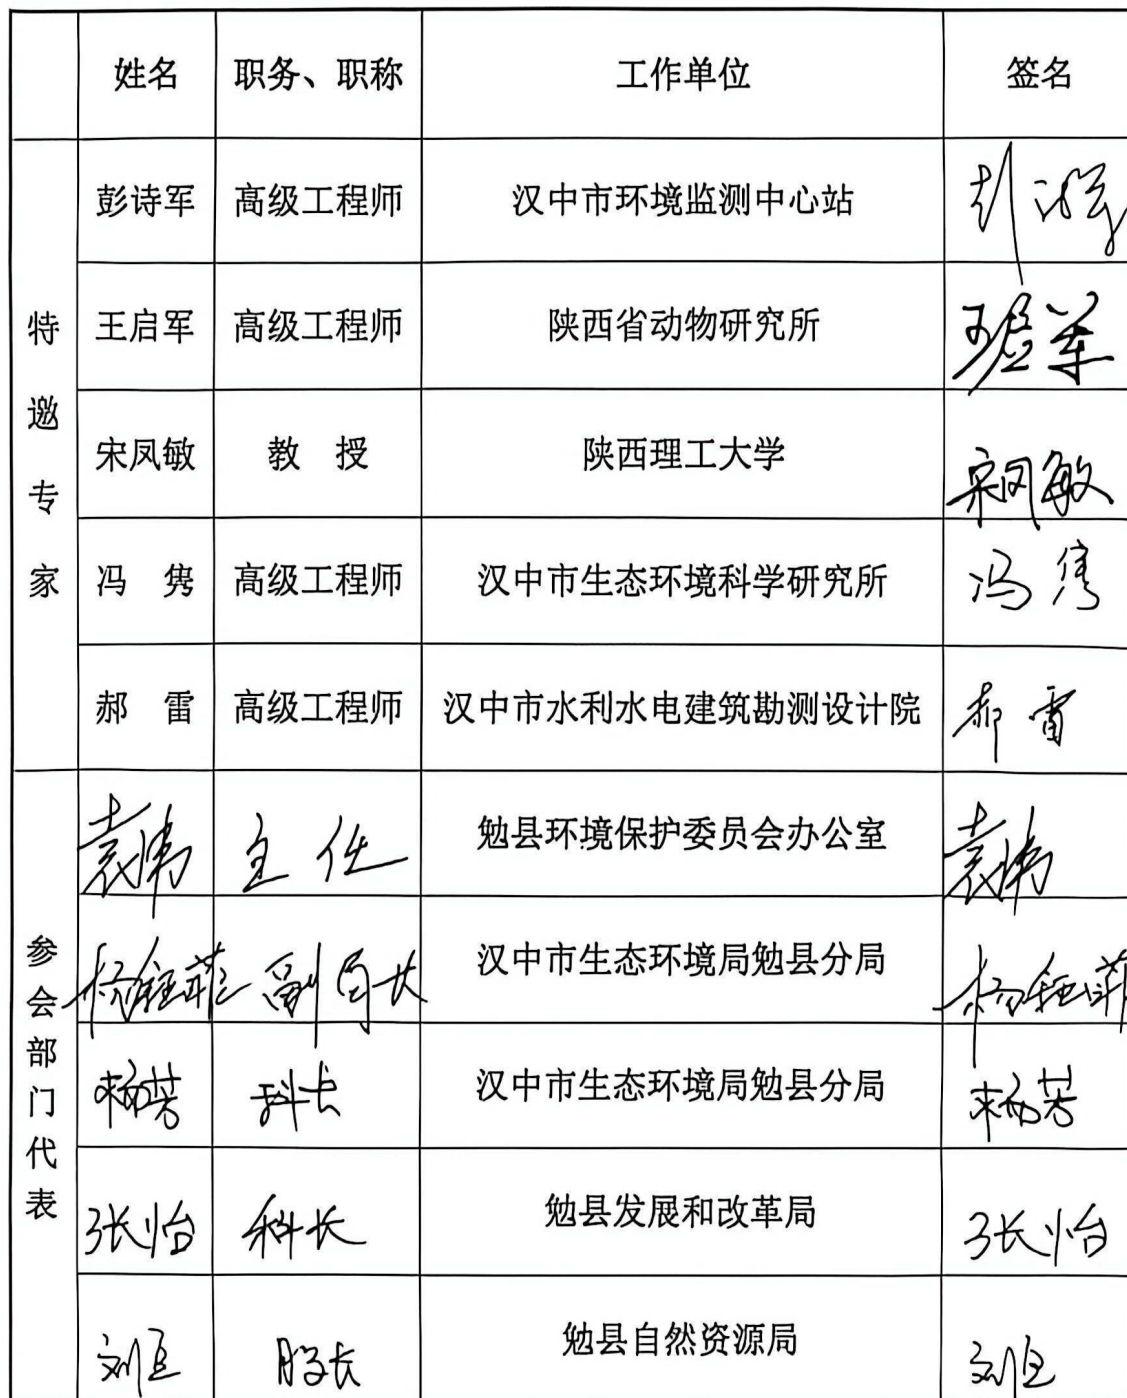 姓名 职务、职称 工作单位 签名
特邀专家
彭诗军 高级工程师 汉中市环境监测中心站 彭诗军
王启军 高级工程师 陕西省动物研究所 王启军
宋凤敏 教 授 陕西理工大学 宋凤敏
冯 隽 高级工程师 汉中市生态环境科学研究所 冯隽
郝 雷 高级工程师 汉中市水利水电建筑勘测设计院 郝雷
参会部门代表
袁炜 主任 勉县环境保护委员会办公室 袁炜
杨钰菲 副局长 汉中市生态环境局勉县分局 杨钰菲
杨芳 科长 汉中市生态环境局勉县分局 杨芳
张怡 科长 勉县发展和改革局 张怡
股长 勉县自然资源局